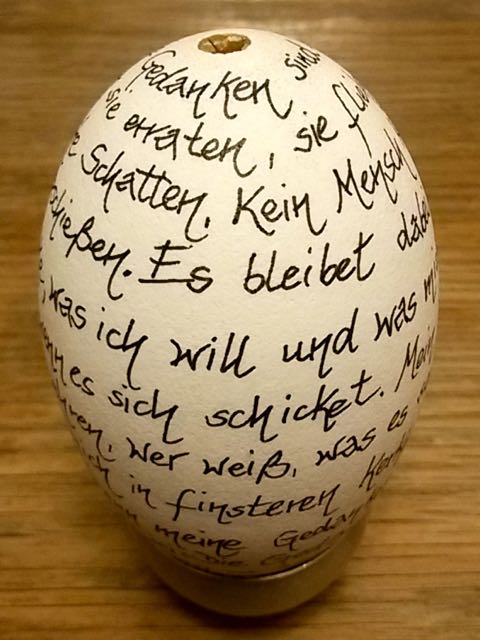 Gedanken sind
sie erraten, sie flie
e Schatten. Kein Mensch
hießen. Es bleibet dabe
, was ich will und was mi
enn es sich schicket. Mein
hren, wer weiß, was es
ch in finsteren Kerk
n meine Gedan